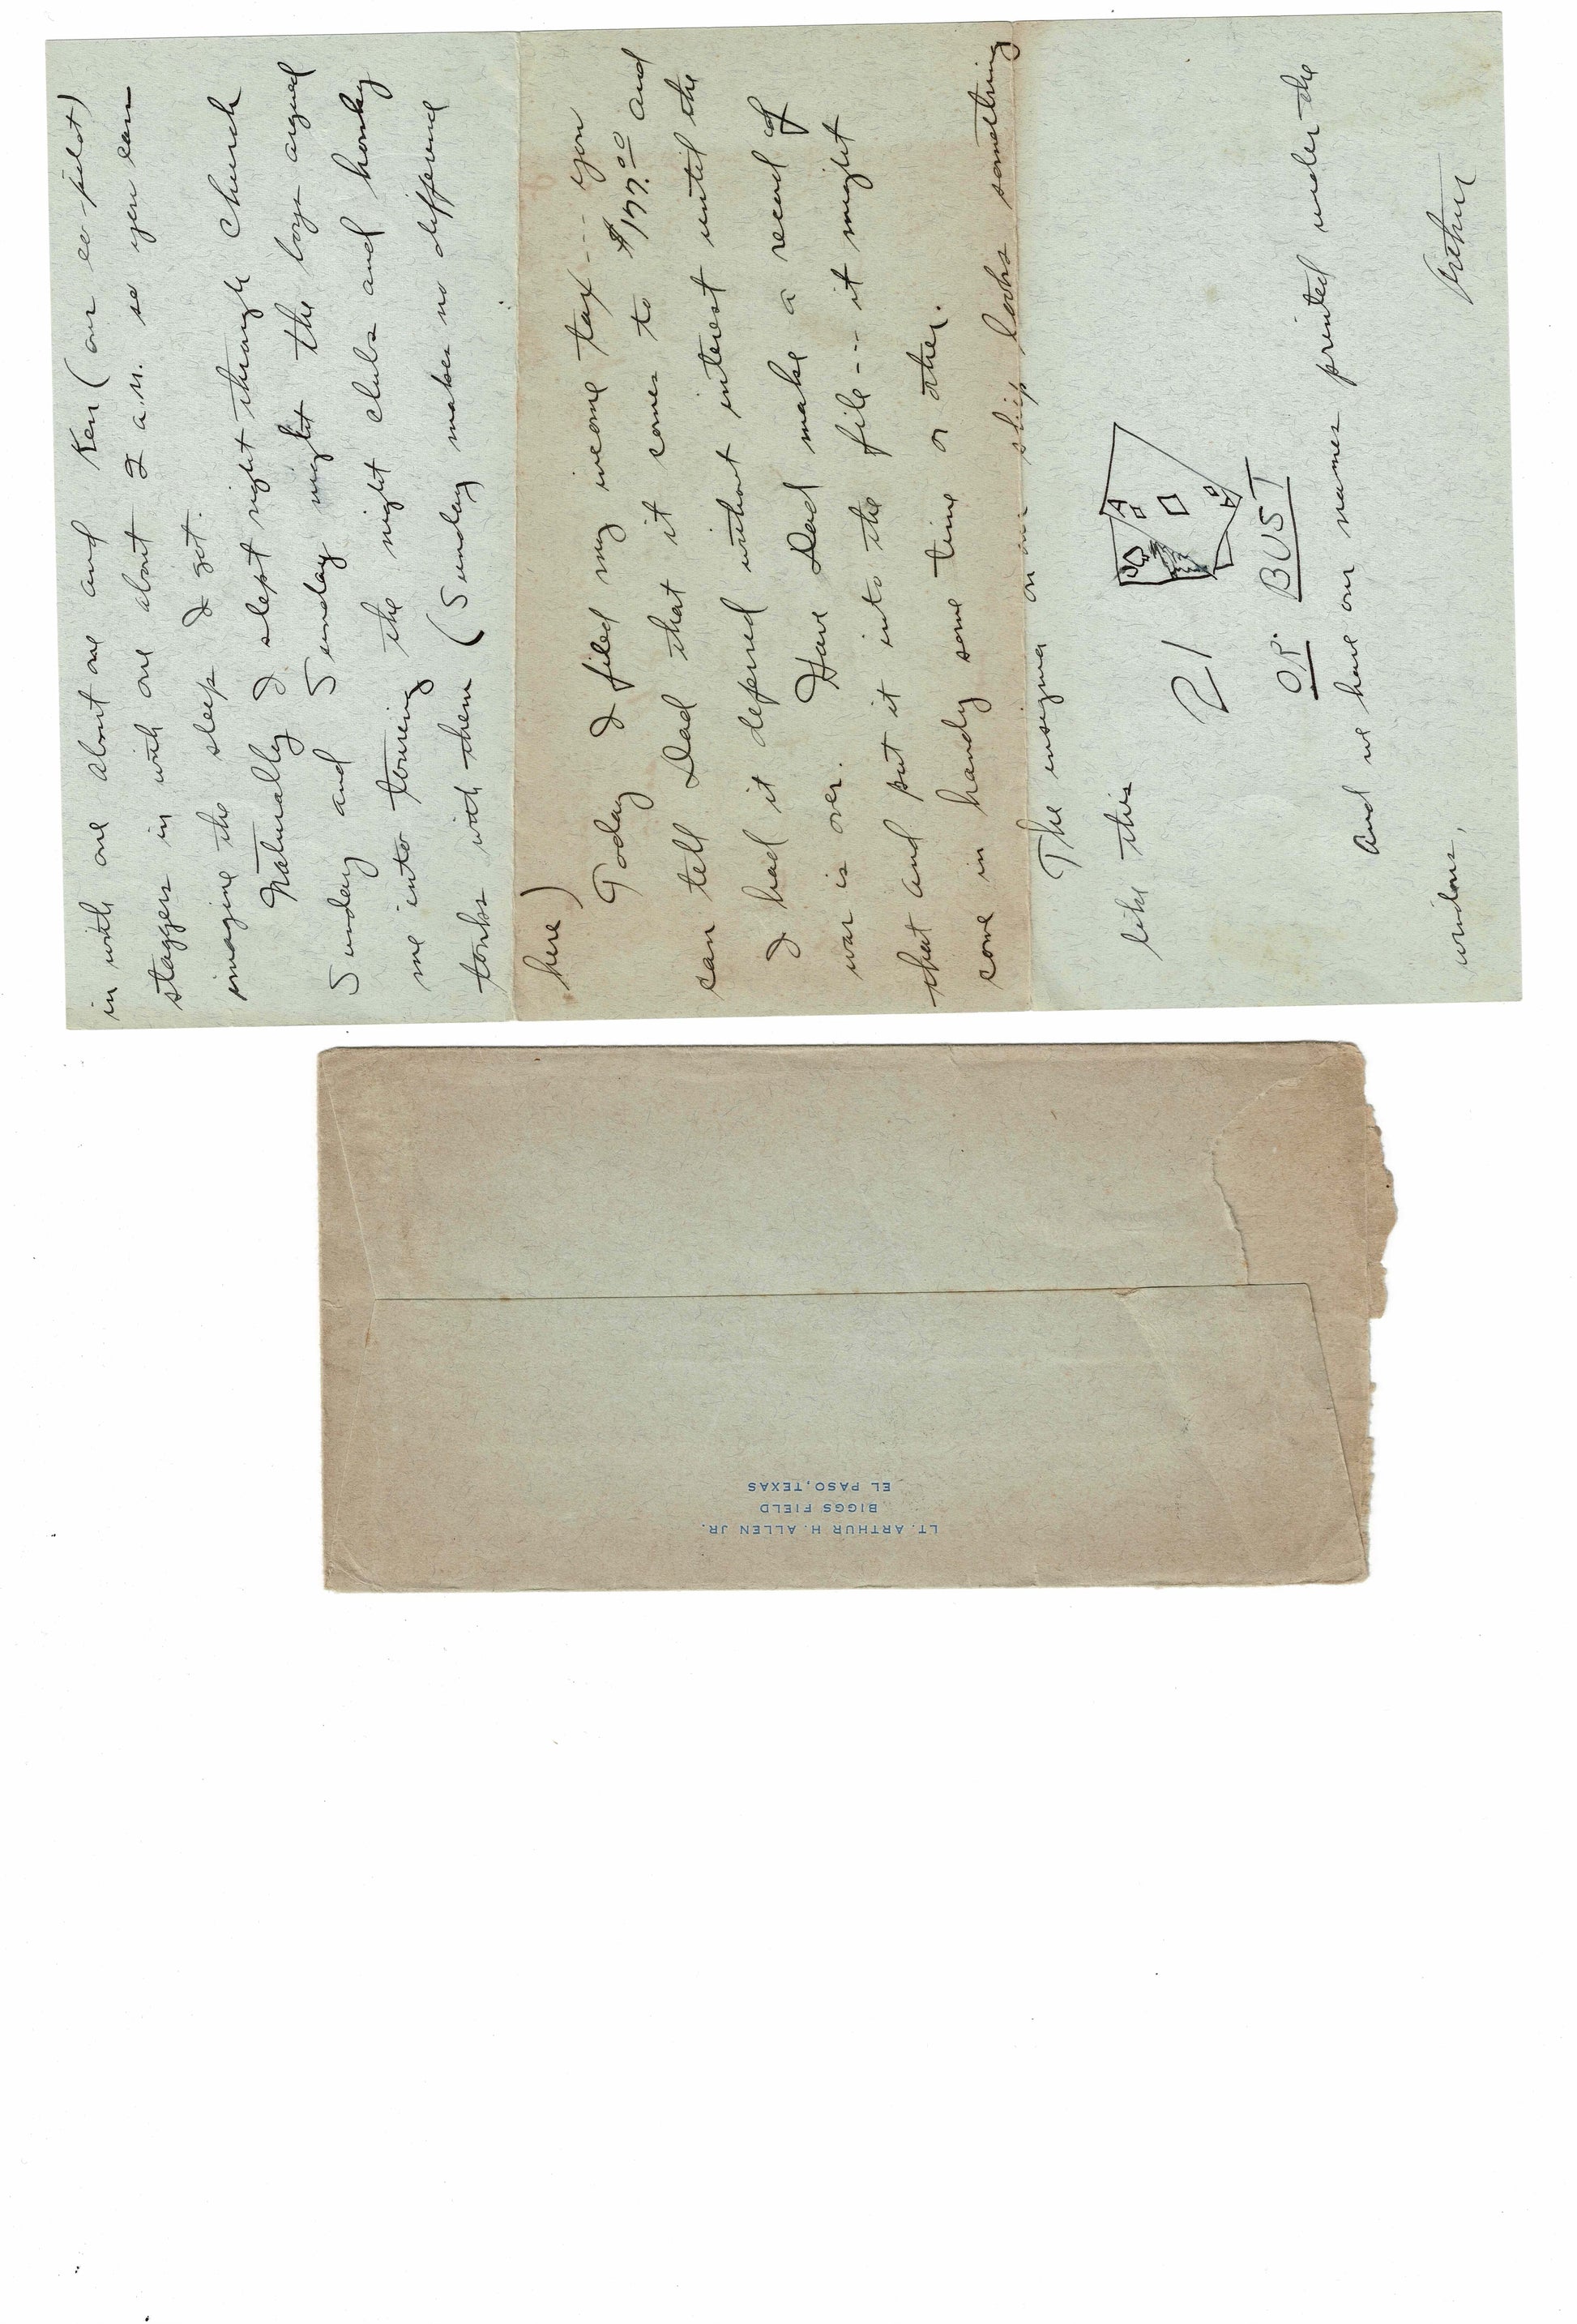 in with one about one and Ken (our co-pilot)
staggers in with one about 2 a.m. so you can
imagine the sleep I got.
Naturally I slept right through church
Sunday and Sunday night the boys argued
me into touring the night clubs and honky
tonks with them (Sunday makes no difference
here)
Today I filed my income tax --- you
can tell Dad that it comes to $177.00 and
I had it deferred without interest until the
war is over. Have Dad make a record of
that and put it into the file --- it might
come in handy some time or other.
The insigna on our ship looks something
like this
21
OR BUST
And we have our names printed under the
windows,
Arthur
LT. ARTHUR H. ALLEN JR.
BIGGS FIELD
EL PASO, TEXAS